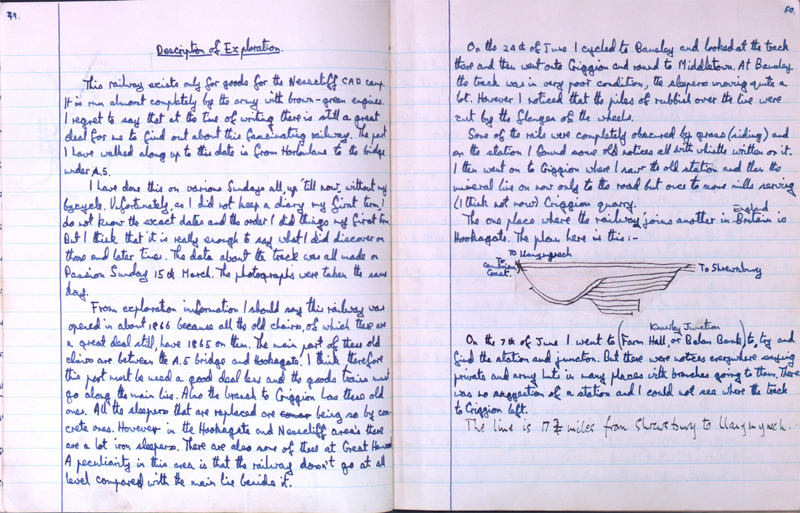 39.
Description of Exploration.
This railway exists only for goods for the Nesscliff CAD camp.
It is run almost completely by the army with brown-green engines.
I regret to say that at the time of writing there is still a great
deal for me to find out about this fascinating railway. The part
I have walked along up to this date is from Hookagate to the bridge
under A.5.
I have done this on various Sundays all, up 'till now, without my
bycycle. Unfortunately, as I did not keep a diary my first term, I
do not know the exact dates and the order I did things my first term.
But I think that it is really enough to say what I did discover on
those and later times. The data about the track was all made on
Passion Sunday 15th March. The photographs were taken the same
day.
From exploration information I should say this railway was
opened in about 1866 because all the old chairs, of which there are
a great deal still, have 1865 on them. The main part of these old
chairs are between the A.5 bridge and Hookagate. I think therefore
this part must be used a good deal less and the goods trains must
go along the main line. Also the branch to Criggion has these old
ones. All the sleepers that are replaced are being so by con-
crete ones. However in the Hookagate and Nesscliff area's there
are a lot iron sleepers. There are also some of these at Great Hanwood
A peculiarity in this area is that the railway doesn't go at all
level compared with the main line beside it.
50.
On the 24th of June I cycled to Bausley and looked at the track
there and then went onto Criggion and round to Middletown. At Bausley
the track was in very poor condition, the sleepers moving quite a
lot. However I noticed that the piles of rubbish over the line were
cut by the flanges of the wheels.
Some of the rails were completely obscured by grass (siding) and
on the station I found some old notices all with whistle written on it.
I then went on to Criggion where I saw the old station and then the
mineral line on now only to the road but once to some mills serving
(I think not now) Criggion quarry.
The one place where the railway joins another in Britain England is
Hookagate. The plan here is this:-
To Llanymynech
To Cambrian Coast.
To Shrewsbury
Kinnerley Junction
On the 7th of June I went to (Farm Hall, or Balan Bank) to try and
find the station and junction. But there were notices everywhere saying
private and army huts in many places with branches going to them. There
was no suggestion of a station and I could not see where the track
to Criggion left.
The line is 17¾ miles from Shrewsbury to Llanymynech.